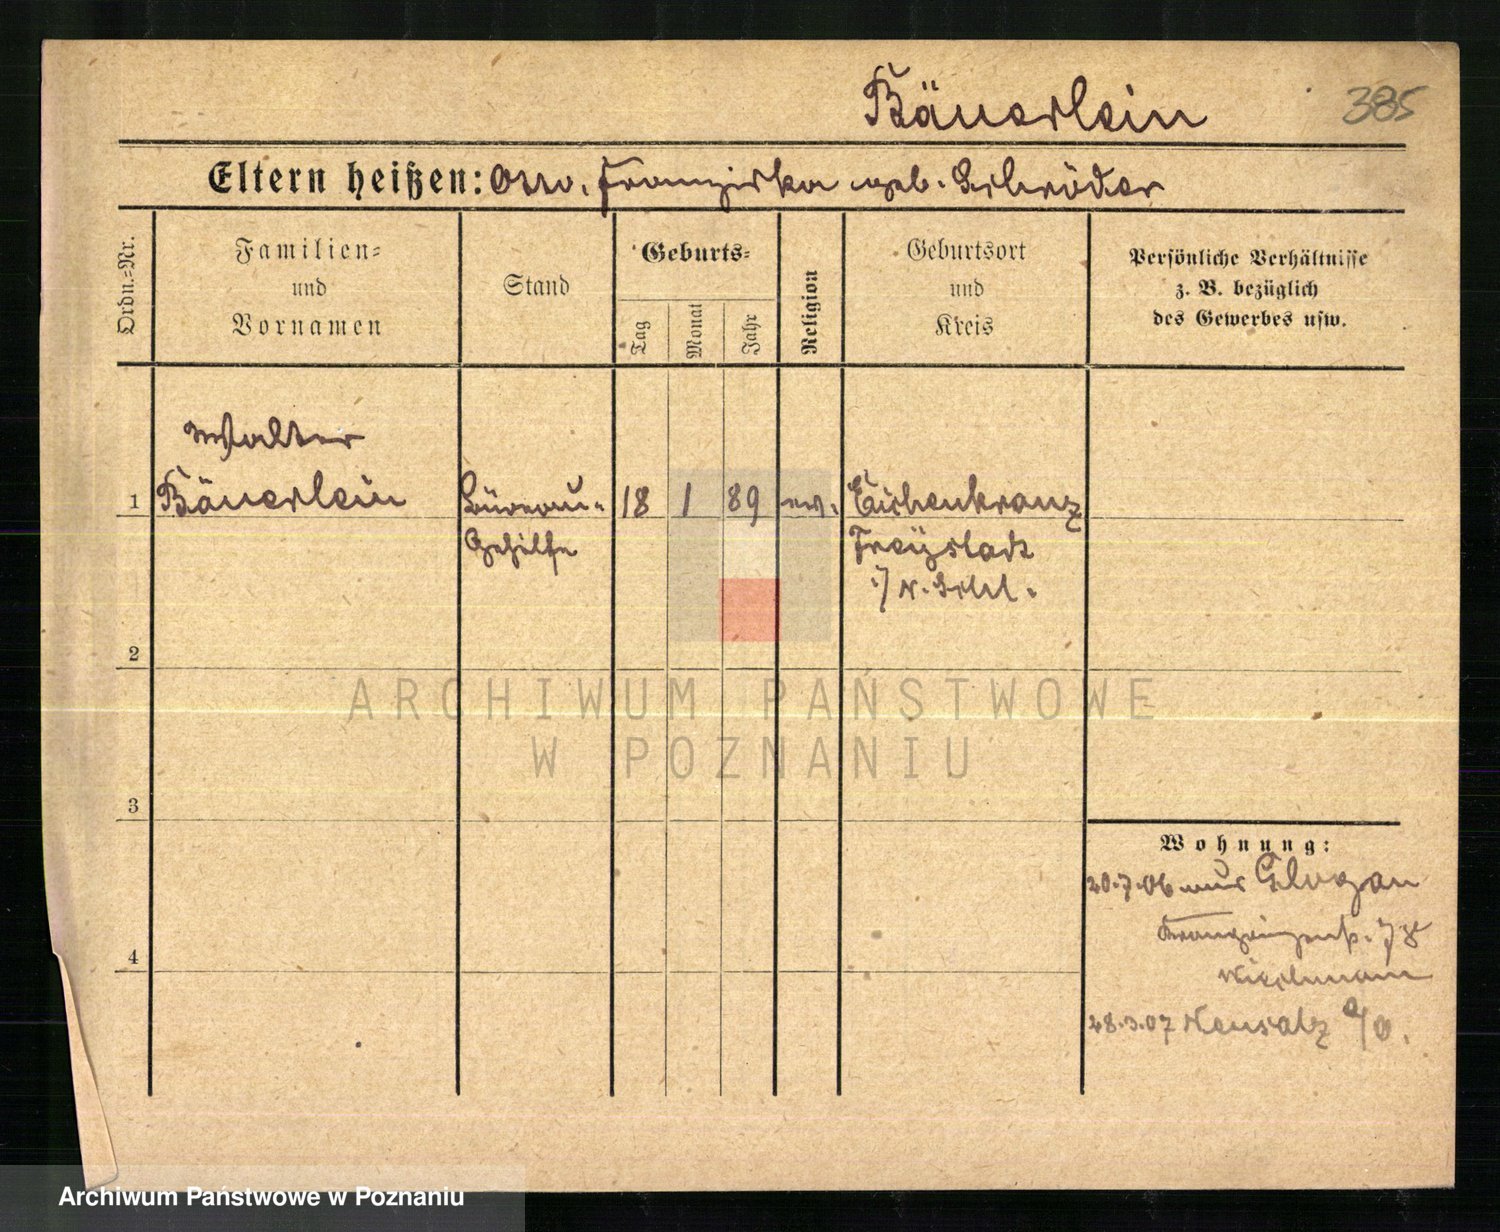 Bäuerlein 385
Eltern heißen: Otto, Franziska geb. Schröder
Ordn.-Nr.
Familien-
und
Vornamen
Stand
Geburts-
Tag
Monat
Jahr
Religion
Geburtsort
und
Kreis
Persönliche Verhältnisse
z. B. bezüglich
des Gewerbes usw.
Walter
1 Bäuerlein Büreau- 18 1 89 ev. Eichenkranz
Gehilfe Freystadt
i/N. Schl.
2
ARCHIWUM PAŃSTWOWE
W POZNANIU
3
Wohnung:
20.7.06 aus Glogau
4
28.3.07 Neusalz a/O.
Archiwum Państwowe w Poznaniu